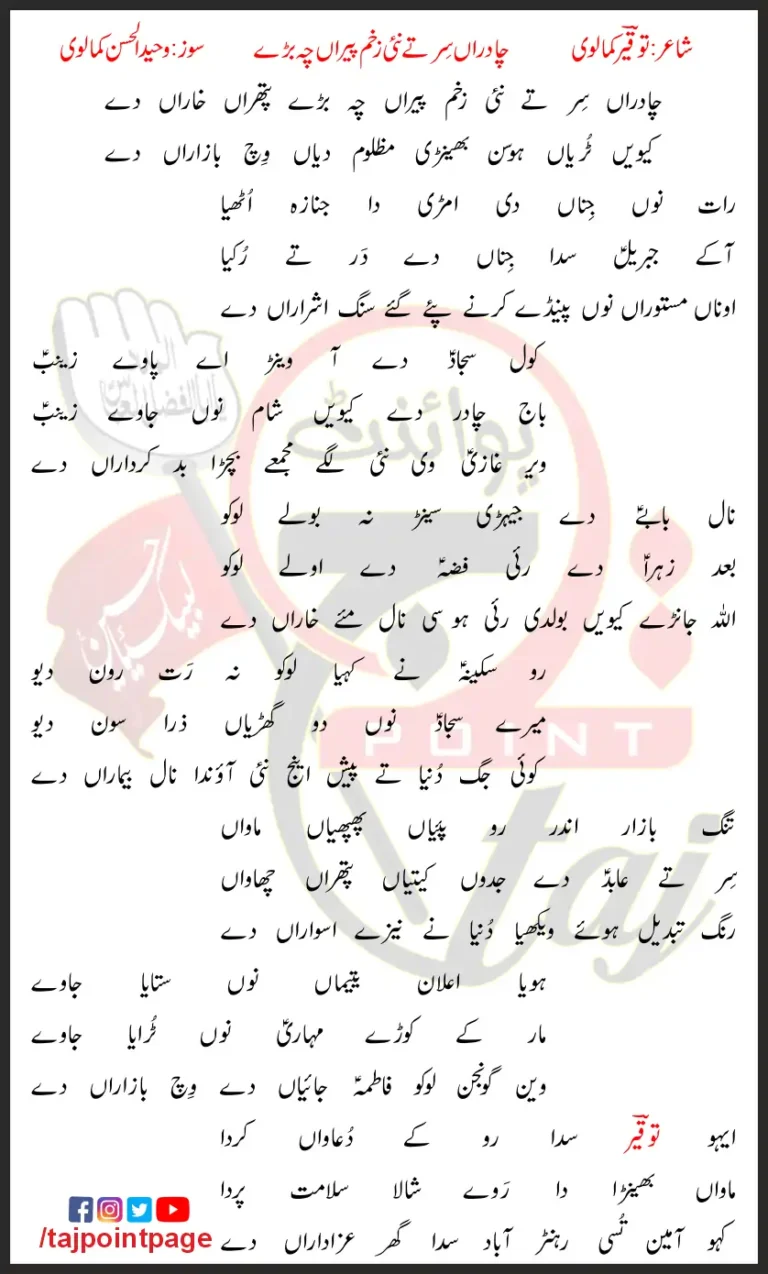 شاعر: توقیر کمالوی چادراں سِر تے نئی زخم پیراں چہ بڑے سوز: وحید الحسن کمالوی
چادراں سِر تے نئی زخم پیراں چہ بڑے پتھراں خاراں دے
کیویں ٹُریاں ہوسن بھینڑی مظلوم دیاں وِچ بازاراں دے
رات نوں جِناں دی امڑی دا جنازہ اُٹھیا
آکے جبریلؑ سدا جِناں دے دَر تے رُکیا
اوناں مستوراں نوں پینڈے کرنے پئے گئے سنگ اشراراں دے
کول سجادؑ دے آ وینڑ اے پاوے زینبؑ
باج چادر دے کیویں شام نوں جاوے زینبؑ
ویر غازیؑ وی نئی لگے مجمعے بچڑا بد کرداراں دے
نال بابےؑ دے جیہڑی سینڑ نہ بولے لوکو
بعد زہراؑ دے رئی فضہؑ دے اولے لوکو
اللہ جانڑے کیویں بولدی رئی ہو سی نال مئے خاراں دے
رو سکینہؑ نے کہیا لوکو نہ رَت رون دیو
میرے سجادؑ نوں دو گھڑیاں ذرا سون دیو
کوئی جگ دُنیا تے پیش اینج نئی آؤندا نال بیماراں دے
تنگ بازار اندر رو پئیاں پھپھیاں ماواں
سِر تے عابدؑ دے جدوں کیتیاں پتھراں چھاواں
رنگ تبدیل ہوئے ویکھیا دُنیا نے نیزے اسواراں دے
ہویا اعلان یتیماں نوں ستایا جاوے
مار کے کوڑے مہاریؑ نوں ٹُرایا جاوے
وین گونجن لوکو فاطمہؑ جائیاں دے وِچ بازاراں دے
ایہو توقیر سدا رو کے دُعاواں کردا
ماواں بھینڑا دا رَوے شالا سلامت پردا
کہو آمین تُسی رہنڑ آباد سدا گھر عزاداراں دے
/tajpointpage
پوائنٹ
تاج
POINT
taj
لبیک یا حسینؑ